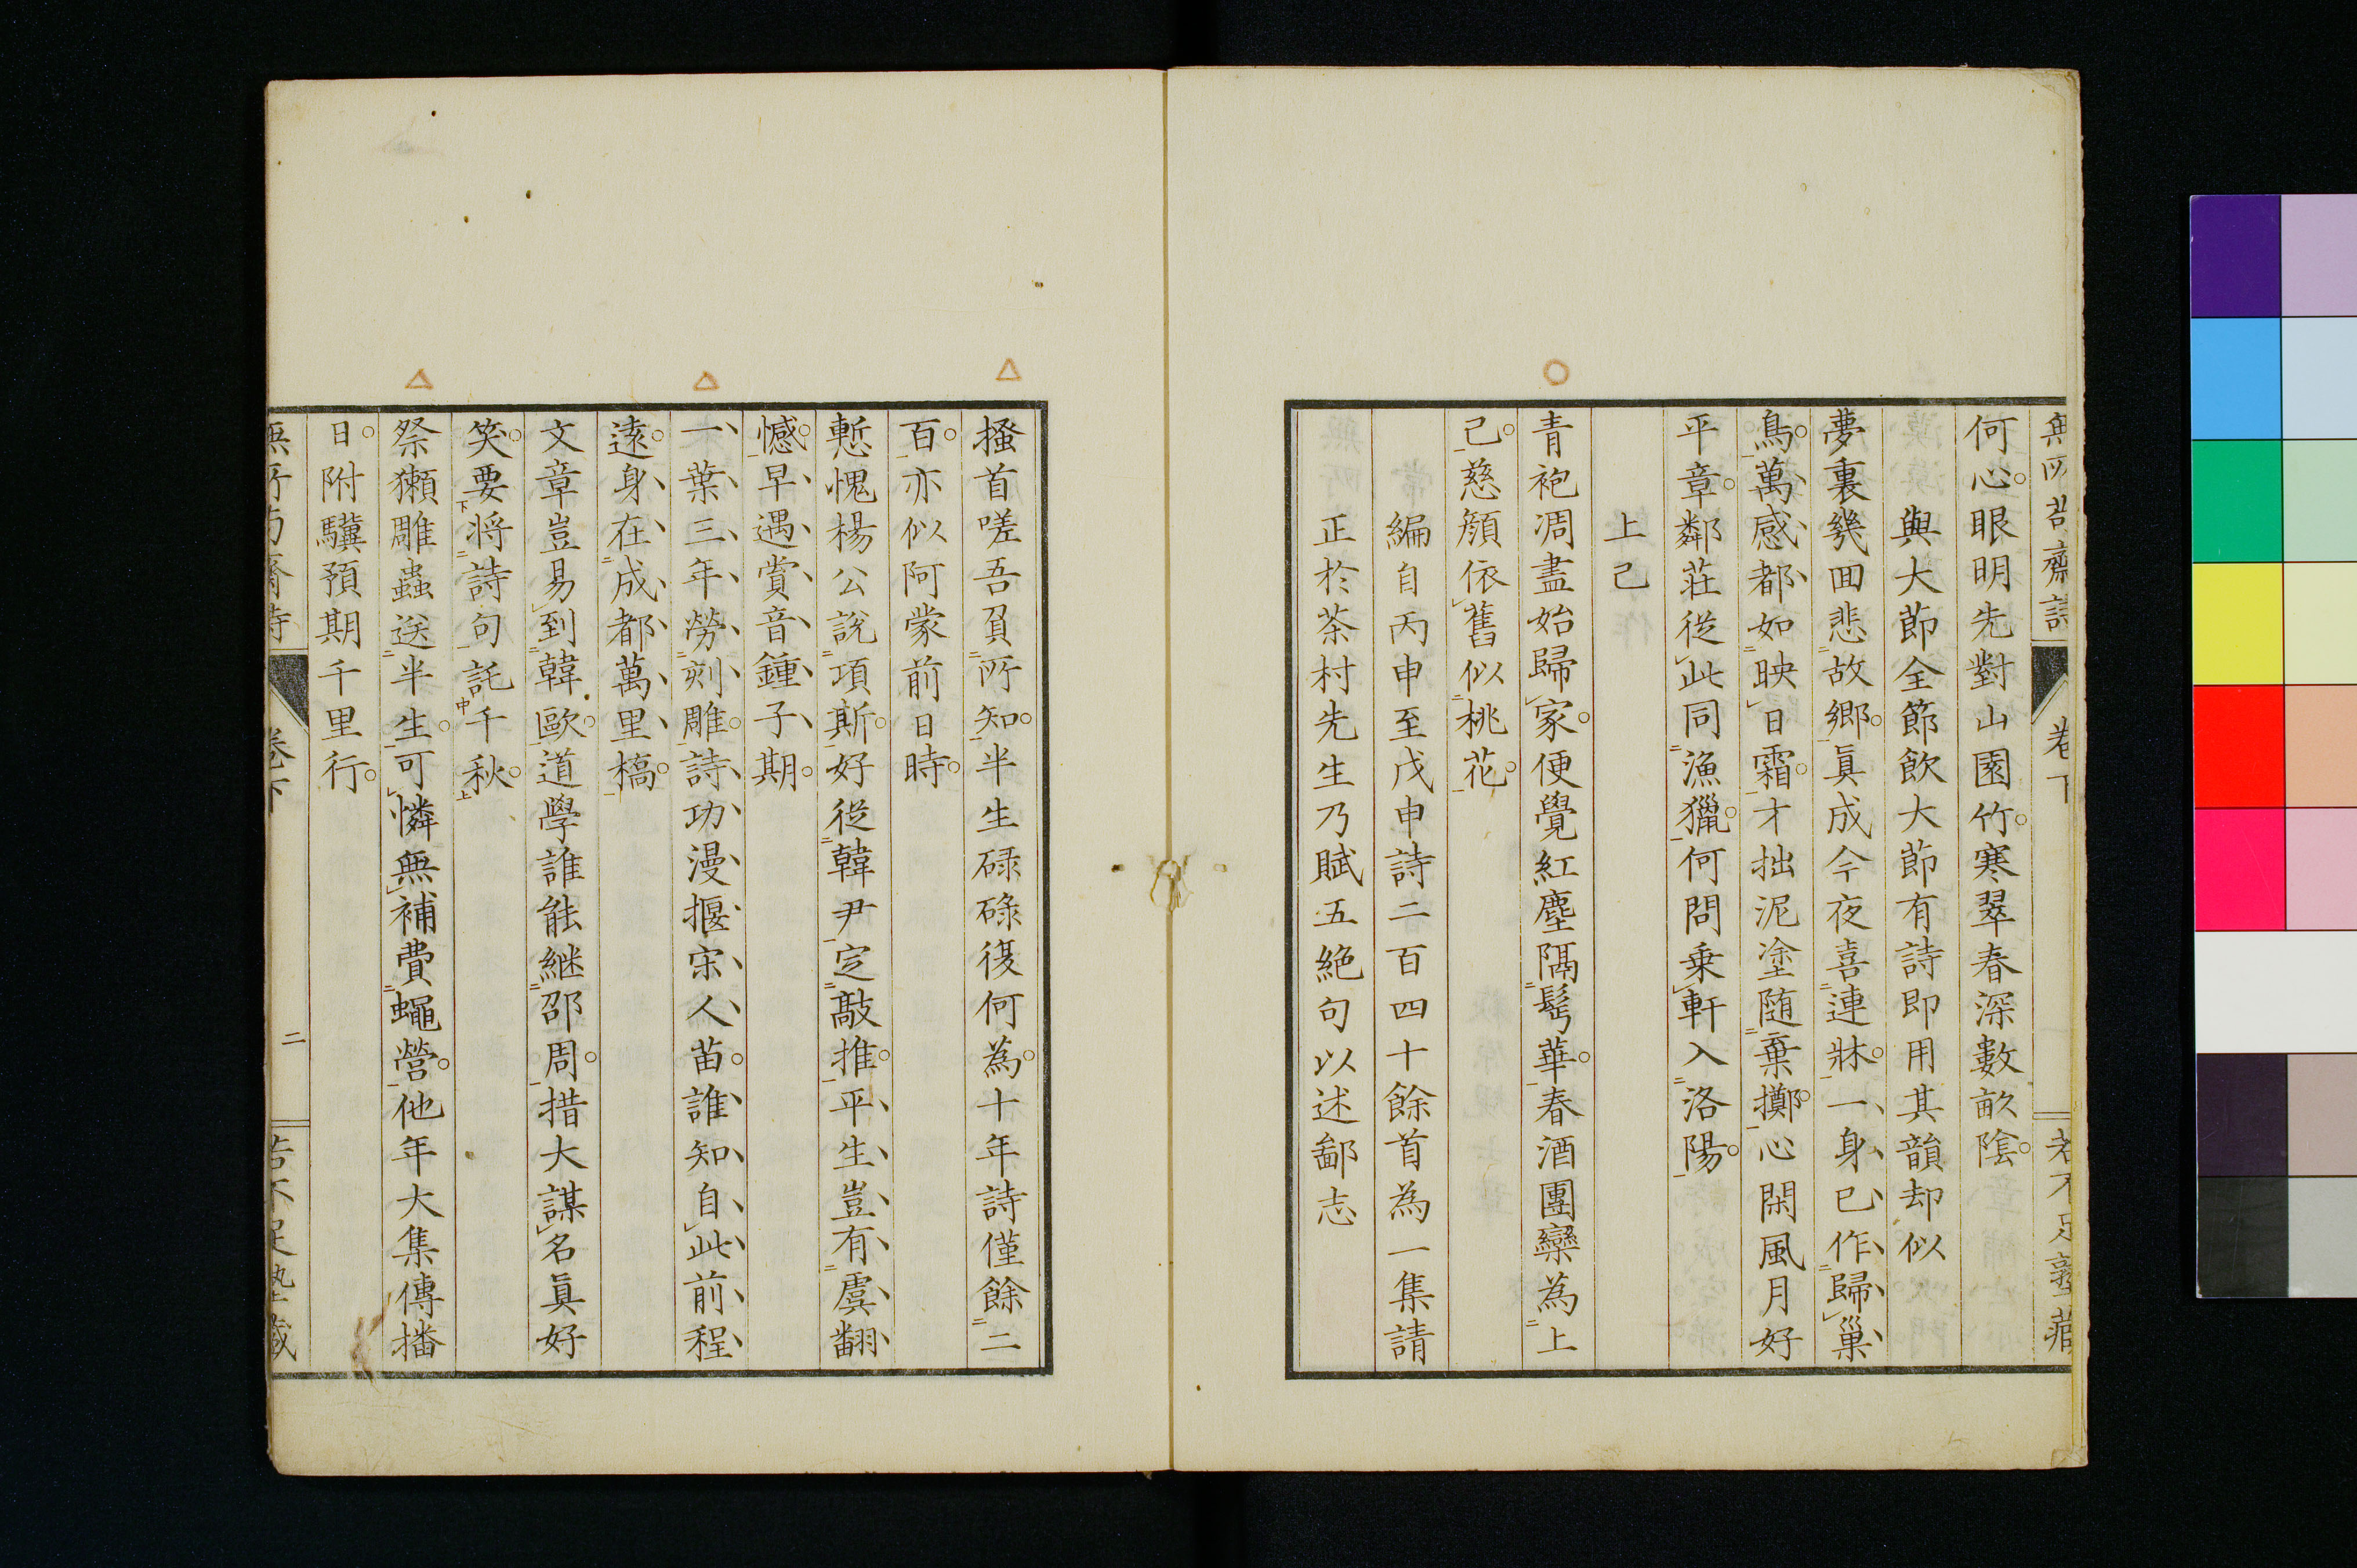 無所苟齋詩 卷下 若不足塾藏
何心眼明先對山園竹寒翠春深數畝陰
與大節全節飲大節有詩即用其韻却似
夢裏幾回悲故鄉眞成今夜喜連牀一身已作歸巢
鳥萬感都如映日霜才拙泥塗随棄擲心閑風月好
平章鄰莊從此同漁獵何問乗軒入洛陽
上巳
青袍凋盡始歸家便覺紅塵隔髩華春酒團欒為上
巳慈顔依舊似桃花
編自丙申至戊申詩二百四十餘首為一集請
正於茶村先生乃賦五絶句以述鄙志
搔首嗟吾負所知半生碌碌復何為十年詩僅餘二
百亦似阿蒙前日時
慙愧楊公說項斯好從韓尹定敲推平生豈有虞翻
憾早遇賞音鍾子期
一葉三年勞刻雕詩功漫揠宋人苗誰知自此前程
遠身在成都萬里橋
文章豈易到韓歐道學誰能継邵周措大謀名眞好
笑要将詩句託千秋
祭獺雕蟲送半生可憐無補費蠅營他年大集傳播
日附驥預期千里行
無所苟齋詩 卷下 二 若不足塾藏